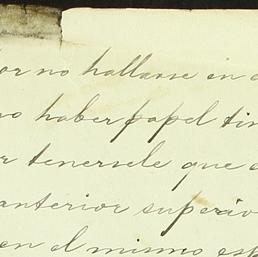 or no hallarse en
no haber papel tim
r tenersele que
anterior superio
en el mismo esp